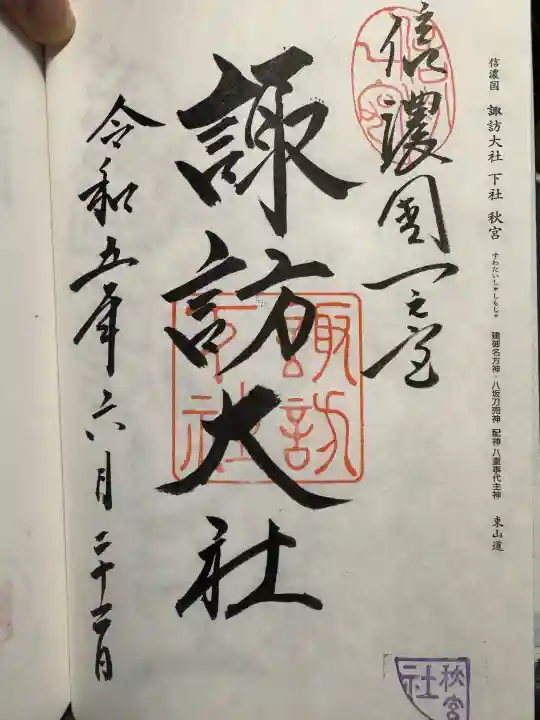 信濃国 諏訪大社 下社 秋宮 すわたいしゃしもしゃ 建御名方神・八坂刀売神 配神 八重事代主神 東山道
信濃國一之宮
諏訪大社
令和五年六月二十二日
諏訪
下社
秋宮
社